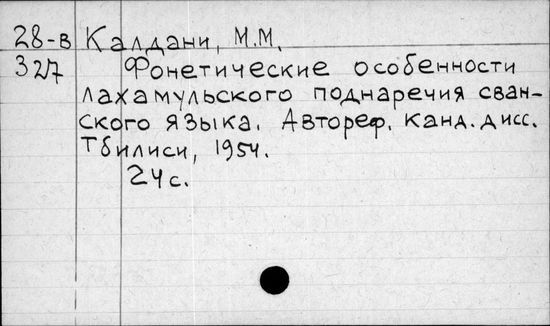 28-в Калдани, М.М.
327 Фонетические особенности
лахамульского поднаречия сван-
ского языка. Автореф. канд. дисс.
Тбилиси, 1954.
24 с.